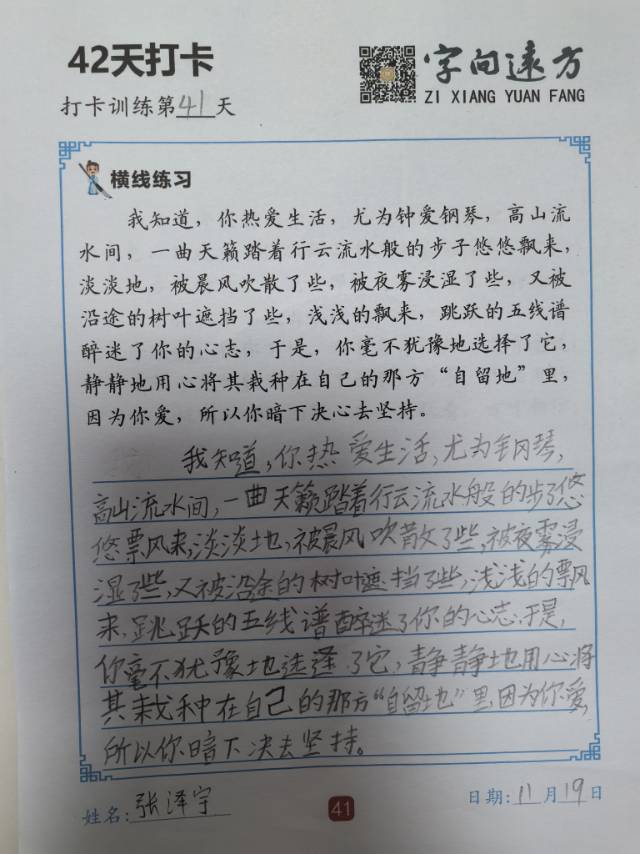 42天打卡
字向远方
ZI XIANG YUAN FANG
打卡训练第41天
横线练习
我知道，你热爱生活，尤为钟爱钢琴，高山流
水间，一曲天籁踏着行云流水般的步子悠悠飘来，
淡淡地，被晨风吹散了些，被夜雾浸湿了些，又被
沿途的树叶遮挡了些，浅浅的飘来，跳跃的五线谱
醉迷了你的心志，于是，你毫不犹豫地选择了它，
静静地用心将其栽种在自己的那方“自留地”里，
因为你爱，所以你暗下决心去坚持。
我知道，你热爱生活，尤为钢琴，
高山流水间，一曲天籁踏着行云流水般的步子悠
悠飘来，淡淡地，被晨风吹散了些，被夜雾浸
湿了些，又被沿途的树叶遮挡了些，浅浅的飘
来，跳跃的五线谱醉迷了你的心志，于是，
你毫不犹豫地选择了它，静静地用心将
其栽种在自己的那方“自留地”里，因为你爱，
所以你暗下决去坚持。
姓名：张泽宇
41
日期：11月19日